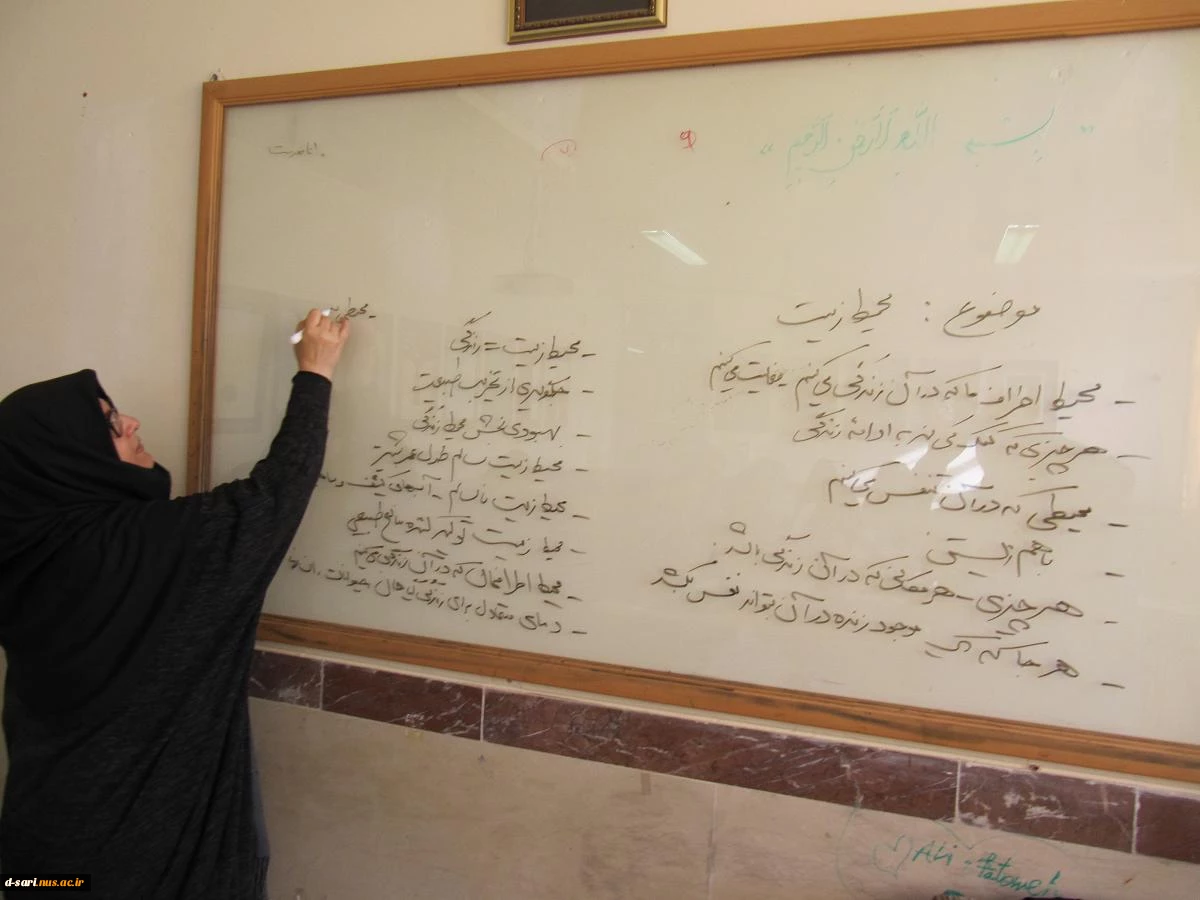 « بسم الله الرحمن الرحیم »
موضوع : محیط زیست
- محیط اطراف ما که در آن زندگی می کنیم - فعالیت می کنیم
- هر چیزی که کمک می کند به ادامه زندگی
- محیطی که در آن تنفس می کنیم
- با هم زیستن
- هر چیزی - هر مکانی که در آن زندگی باشد.
- هر جا که موجود زنده در آن بتواند نفس بکشد
- محیط زیست = زندگی
- جلوگیری از تخریب طبیعت
- بهبودی بخش محیط زندگی
- محیط زیست سالم طول عمر بیشتر
- محیط زیست ناسالم - آبهای کثیف و
- محیط زیست منابع طبیعی
- محیط اطرافمان که در آن زندگی می کنیم
- دمای متعادل برای زندگی حیوانات
- محیطی
ALI - Fatemeh
d-sari.nus.ac.ir